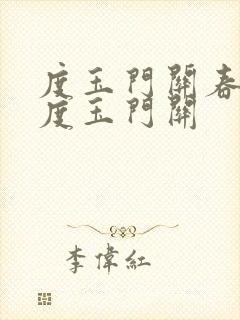 度玉門關春
度玉門關
李偉紅